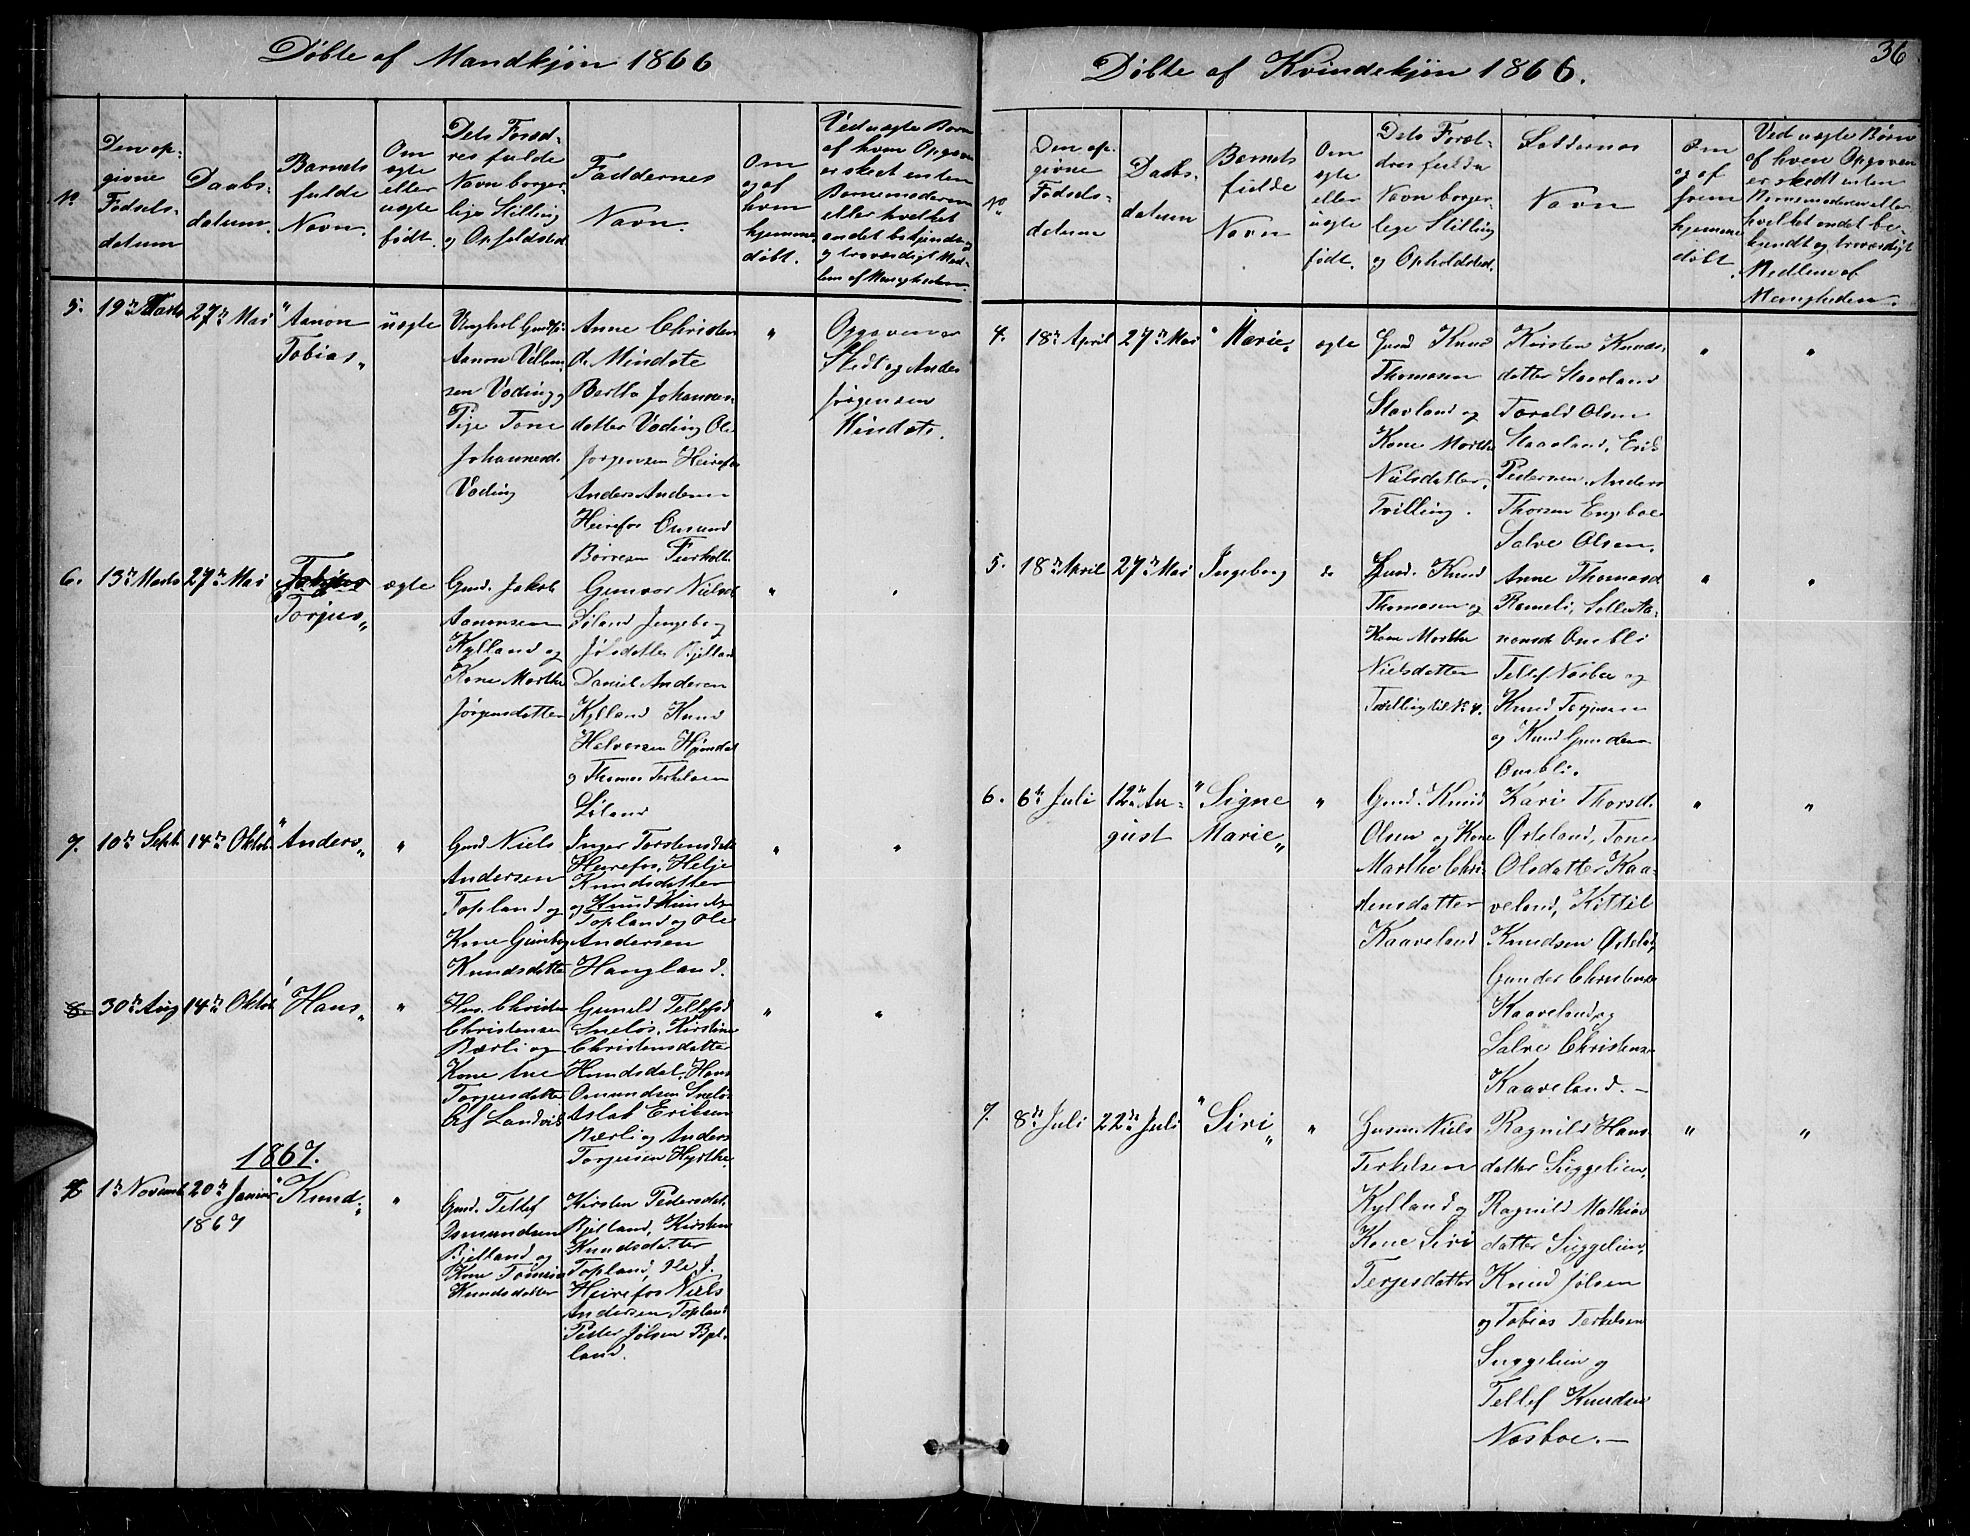 Døbte af Mandkjøn 1866
No.
Den op-
givne
Fødsels-
datum
Daabs-
datum.
Barnets
fulde
Navn.
Om
ægte
eller
uægte
født.
Dets Foræld-
res fulde
Navn borger-
lige Stilling
og Opholdsted
Faddernes
Navn.
Om
og af
hvem
hjemme-
døbt.
Ved uægte Børn
af hvem Opgaven
er skeet enten
Barnemoderen
eller hvilket
andet bekjendt
og troværdigt Med-
lem af Menigheden.
5.
19de Marts
27de Mai
"Aanon
Tobias"
uægte
Ungkal
Aanon Villum-
sen Vading og
Pige Tone
Johannesd.
Vading
Anne Christen
Bertha Johannes-
datter Vading Ole
Jørgensen Heirefos
Anders Andersen
Heirefos Omund
Børresen
"
Opgaven er
Skedt og Anders
Jørgensen
6.
13de Marts
27de Mai
Torjus"
ægte
Gmd. Jakob
Aanonsen
Kylland og
Kone Marthe
Jørgensdatter
Gunvor Nielsd.
Søland Ingeborg
Jølsdatter Bjelland
Daniel Andersen
Kylland Knud
Halvorsen
og Thomas Terkelsen
Søland
"
"
7.
10de Sept.
14de Oktob.
"Anders"
"
Gmd. Niels
Andersen
Topland og
Kone Gunborg
Knudsdatter
Inger Torstensdatt
Heirefos, Helje
Knudsdatter
og Knud
Topland og Ole
Andersen
Haugland.
"
"
8.
30de Aug
14de Oktob
"Hans"
"
Hus. Christen
Christensen
Bærli og
Kone Ane
Torjusdatter
Af Landvik
Guneld Tellefsd
Sneløs, Kirstine
Christensdatter
Hundsdal, Hans
Omundsen Sneløs
Aslak Eriksen
Bærli og Anders
Torjusen
"
"
1867.
1de Novemb
20de Januar
1867
"Knud"
"
Gmd. Tellef
Osmundsen
Bjelland og
Kone
Knudsdatter
Kirsten Pedersdat.
Bjelland, Kirsten
Knudsdatter
Topland, Ole J.
Heirefos Niels
Andersen Topland
Peder Jølsen Bjel-
land.
Døbte af Kvindekjøn 1866.
36
No
Den op-
givne
Fødsels-
datum
Daabs-
datum
Barnets
fulde
Navn
Om
ægte
eller
uægte
født.
Dets Foræl-
dres fulde
Navn borger-
lige Stilling
og Opholdsted.
Faddernes
Navn
Om
og af
hvem
hjemme
døbt.
Ved uægte Børn
af hvem Opgaven
er skedt enten
Barnemoderen eller
hvilket andet be-
kjendt og troværdigt
Medlem af
Menigheden.
4.
18de April
27de Mai
"Marie"
ægte
Gmd Knud
Thomasen
Stavland og
Kone Marthe
Nielsdatter.
Tvilling.
Kirsten Knuds-
datter Staveland
Torald Olsen
Staaeland, Erik
Pedersen, Anders
Thorsen Engeboe
Salve Olsen.
"
"
5.
18de April
27de Mai
Ingeborg
do
Gmd. Knud
Thomasen og
Kone Marthe
Nielsdatter
Tvilling til No 4.
Anne Thomasd
Rameli,
Ombli
Tellef Nosboe og
Knud Torjusen
og Knud Gundersen
Ombli.
"
"
6.
6te Juli
12te Au-
gust
"Signe
Marie"
"
Gmd. Knud
Olsen og Kone
Marthe Chri-
stensdatter
Kaaveland
Kari Thorsd.
Østeland, Tone
Olsdatter Kaa-
veland, Kittil
Knudsen Østeland
Gunder Christensen
Kaaveland og
Salve Christensen
Kaaveland.—
"
"
7.
8de Juli
22de Juli
"Siri"
"
Niels
Terkelsen
Kylland og
Kone Siri
Terjesdatter
Ragnild Hans-
datter Suggelien,
Ragnild Mathias-
datter Suggelien,
Knud Jølsen
og Tobias Terkelsen
Suggelien og
Tellef Knudsen
Nosboe.—
"
"